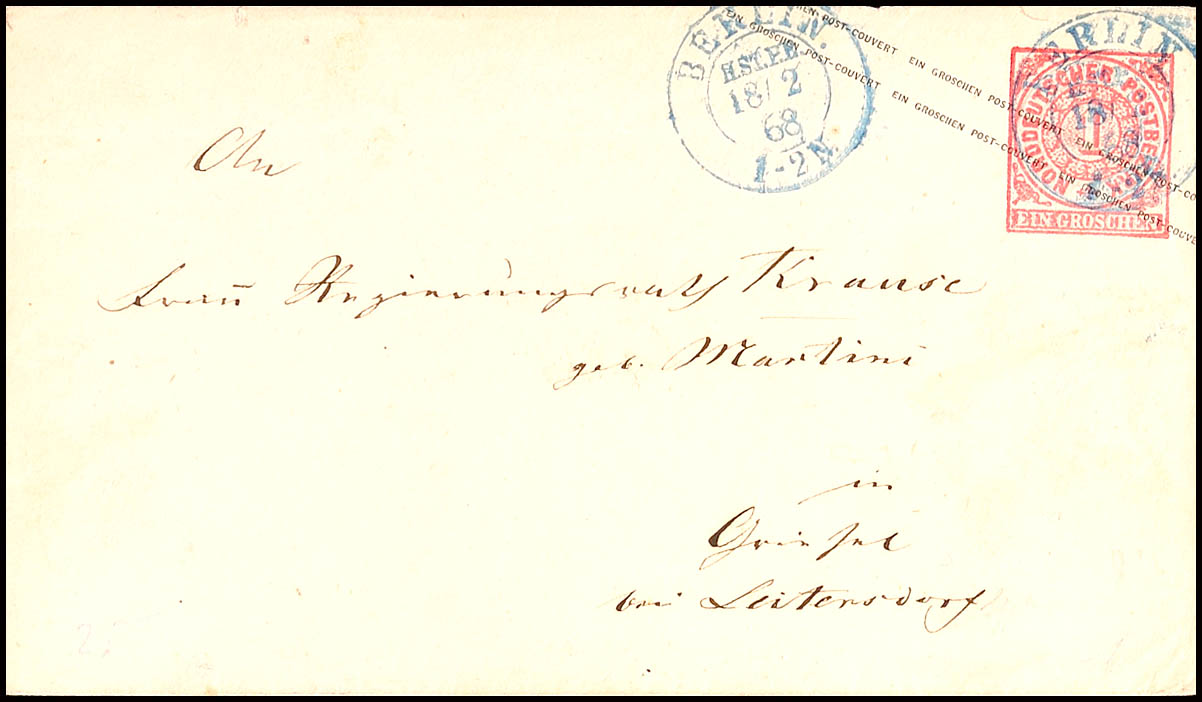 BERLIN.
H.ST.P.E.
18/2
68
1-2N.
EIN GROSCHEN POST-COUVERT EIN GROSCHEN POST-COUVERT EIN GROSCHEN POST-COUVERT
EIN GROSCHEN POST-COUVERT EIN GROSCHEN POST-COUVERT EIN GROSCHEN POST-COUVERT
BERLIN
18
NORDDEUTSCHER POSTBEZIRK
1
EIN GROSCHEN
An
Frau Regierungsrath Krause
geb. Martini
in
Griesel
bei Leitersdorf